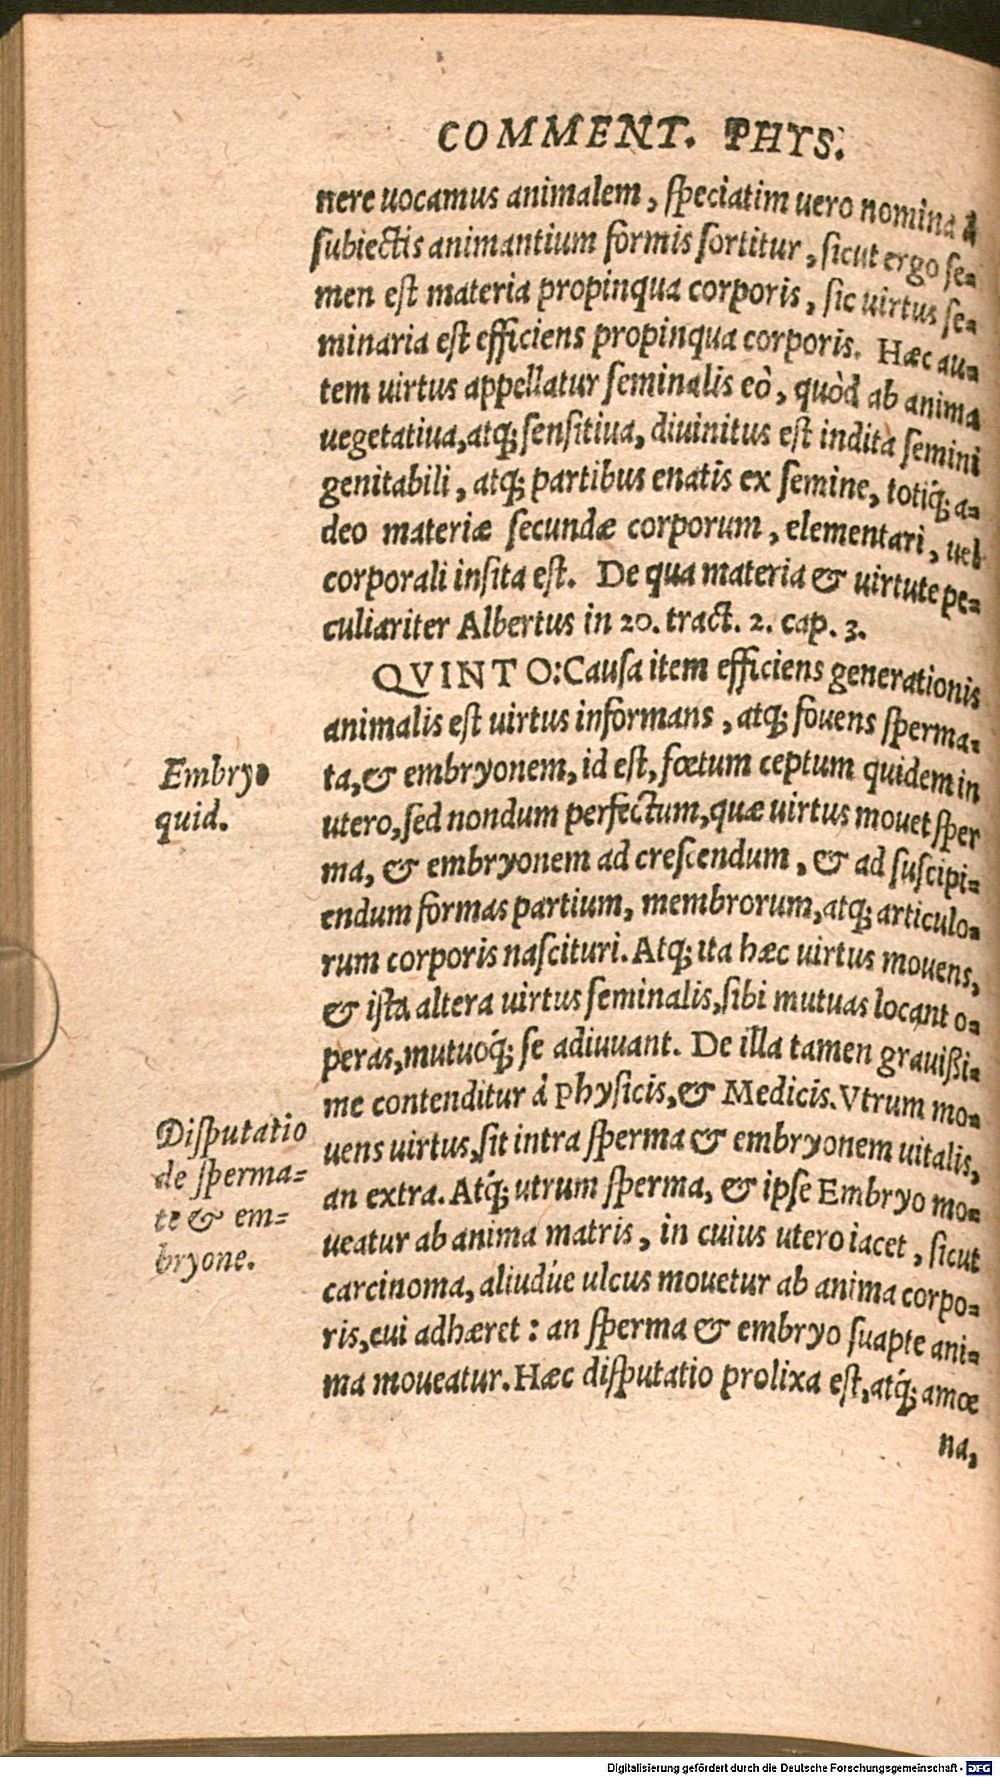 COMMENT. PHYS.
nere uocamus animalem, ſpeciatim uero nomina à
ſubiectis animantium formis ſortitur, ſicut ergo ſe=
men eſt materia propinqua corporis, ſic uirtus ſe=
minaria eſt efficiens propinqua corporis. Hæc au=
tem uirtus appellatur ſeminalis eò, quòd ab anima
uegetatiua, atq; ſenſitiua, diuinitus eſt indita ſemini
genitabili, atq; partibus enatis ex ſemine, totiq́; a=
deo materiæ ſecundæ corporum, elementari, uel
corporali inſita eſt. De qua materia & uirtute pe=
culiariter Albertus in 20. tract. 2. cap. 3.
QVINTO: Cauſa item efficiens generationis
animalis eſt uirtus informans, atq; fouens ſperma=
Embryo
ta, & embryonem, id eſt, fœtum ceptum quidem in
quid.
utero, ſed nondum perfectum, quæ uirtus mouet ſper
ma, & embryonem ad creſcendum, & ad ſuſcipi=
endum formas partium, membrorum, atq; articulo=
rum corporis naſcituri. Atq; ita hæc uirtus mouens,
& iſta altera uirtus ſeminalis, ſibi mutuas locant o=
peras, mutuoq́; ſe adiuuant. De illa tamen grauißi=
me contenditur à Phyſicis, & Medicis. Vtrum mo=
Diſputatio
uens uirtus, ſit intra ſperma & embryonem uitalis,
de ſperma=
an extra. Atq́; utrum ſperma, & ipſe Embryo mo=
te & em=
ueatur ab anima matris, in cuius utero iacet, ſicut
bryone.
carcinoma, aliudúe ulcus mouetur ab anima corpo=
ris, cui adhæret: an ſperma & embryo ſuapte ani=
ma moueatur. Hæc diſputatio prolixa eſt, atq́; amœ
na,
Digitalisierung gefördert durch die Deutsche Forschungsgemeinschaft - DFG